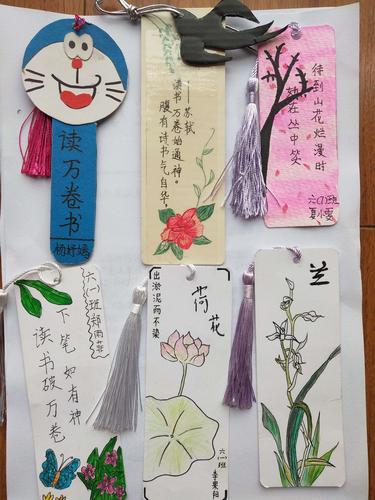 读万卷书
——苏轼
读书万卷始通神。
腹有诗书气自华,
待到山花烂漫时
她在丛中笑
六(1)班
六(一)班
读书破万卷
下笔如有神
出淤泥而不染
荷花
六(一)班
兰